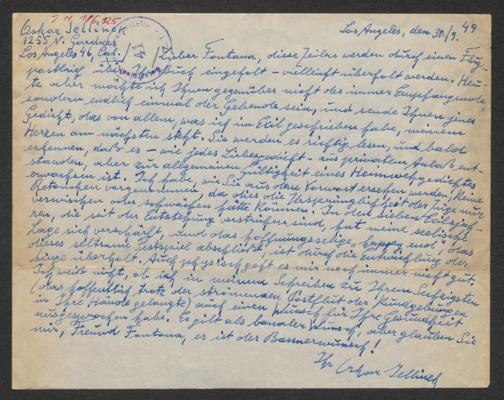 Oskar Jellinek
1255 N. Gardner
Los Angeles 46, Cal.
J.N. 196.325
Los Angeles, den 30/9. 49
Lieber Fontana, diese Zeilen werden durch einen Flug-
postbrief über Ihr Buch eingeholt - vielleicht überholt werden. Heu-
te aber möchte ich Ihnen gegenüber nicht der immer Empfangende,
sondern endlich einmal der Gebende sein, und sende Ihnen jenes
Gedicht, das von allem, was ich im Exil geschrieben habe, meinem
Herzen am nächsten steht. Sie werden es richtig lesen, und bald
erkennen, daß es - wie jedes Liebesgedicht - aus privatem Anlaß ent-
standen, aber zur allgemeinen Gültigkeit eines Heimwehgedichtes
erwachsen ist. Ich habe, wie Sie aus dem Vorwort ersehen werden, keine
Retouchen vorgenommen, da dies die Ursprünglichkeit der Züge nur
verwischen oder schwächen hätte können. In den sieben Jah-
ren, die seit der Entstehung verstrichen sind, hat meine seelische
Lage sich verschärft, und das hoffnungsselige "happy end", das
dieses seltsame Festspiel abschließt, ist durch die Entwicklung der
Dinge überholt. Auch physisch geht es mir noch immer nicht gut.
Ich weiß nicht, ob ich in meinem Schreiben zu Ihrem Sechzigsten
(das hoffentlich trotz der strömenden Postflut der Kundgebungen
in Ihre Hände gelangte) auch einen Wunsch für Ihre Gesundheit
ausgesprochen habe. Es gilt als banaler Wunsch, aber glauben Sie
mir, Freund Fontana, es ist der Bannerwunsch!
Ihr Oskar Jellinek